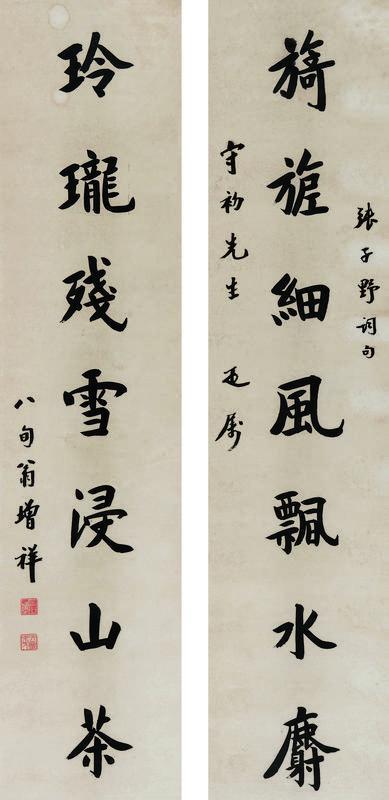 張子野詞句
旖旎細風飄水麝
守初先生 正屬
玲瓏殘雪浸山茶
八旬翁增祥